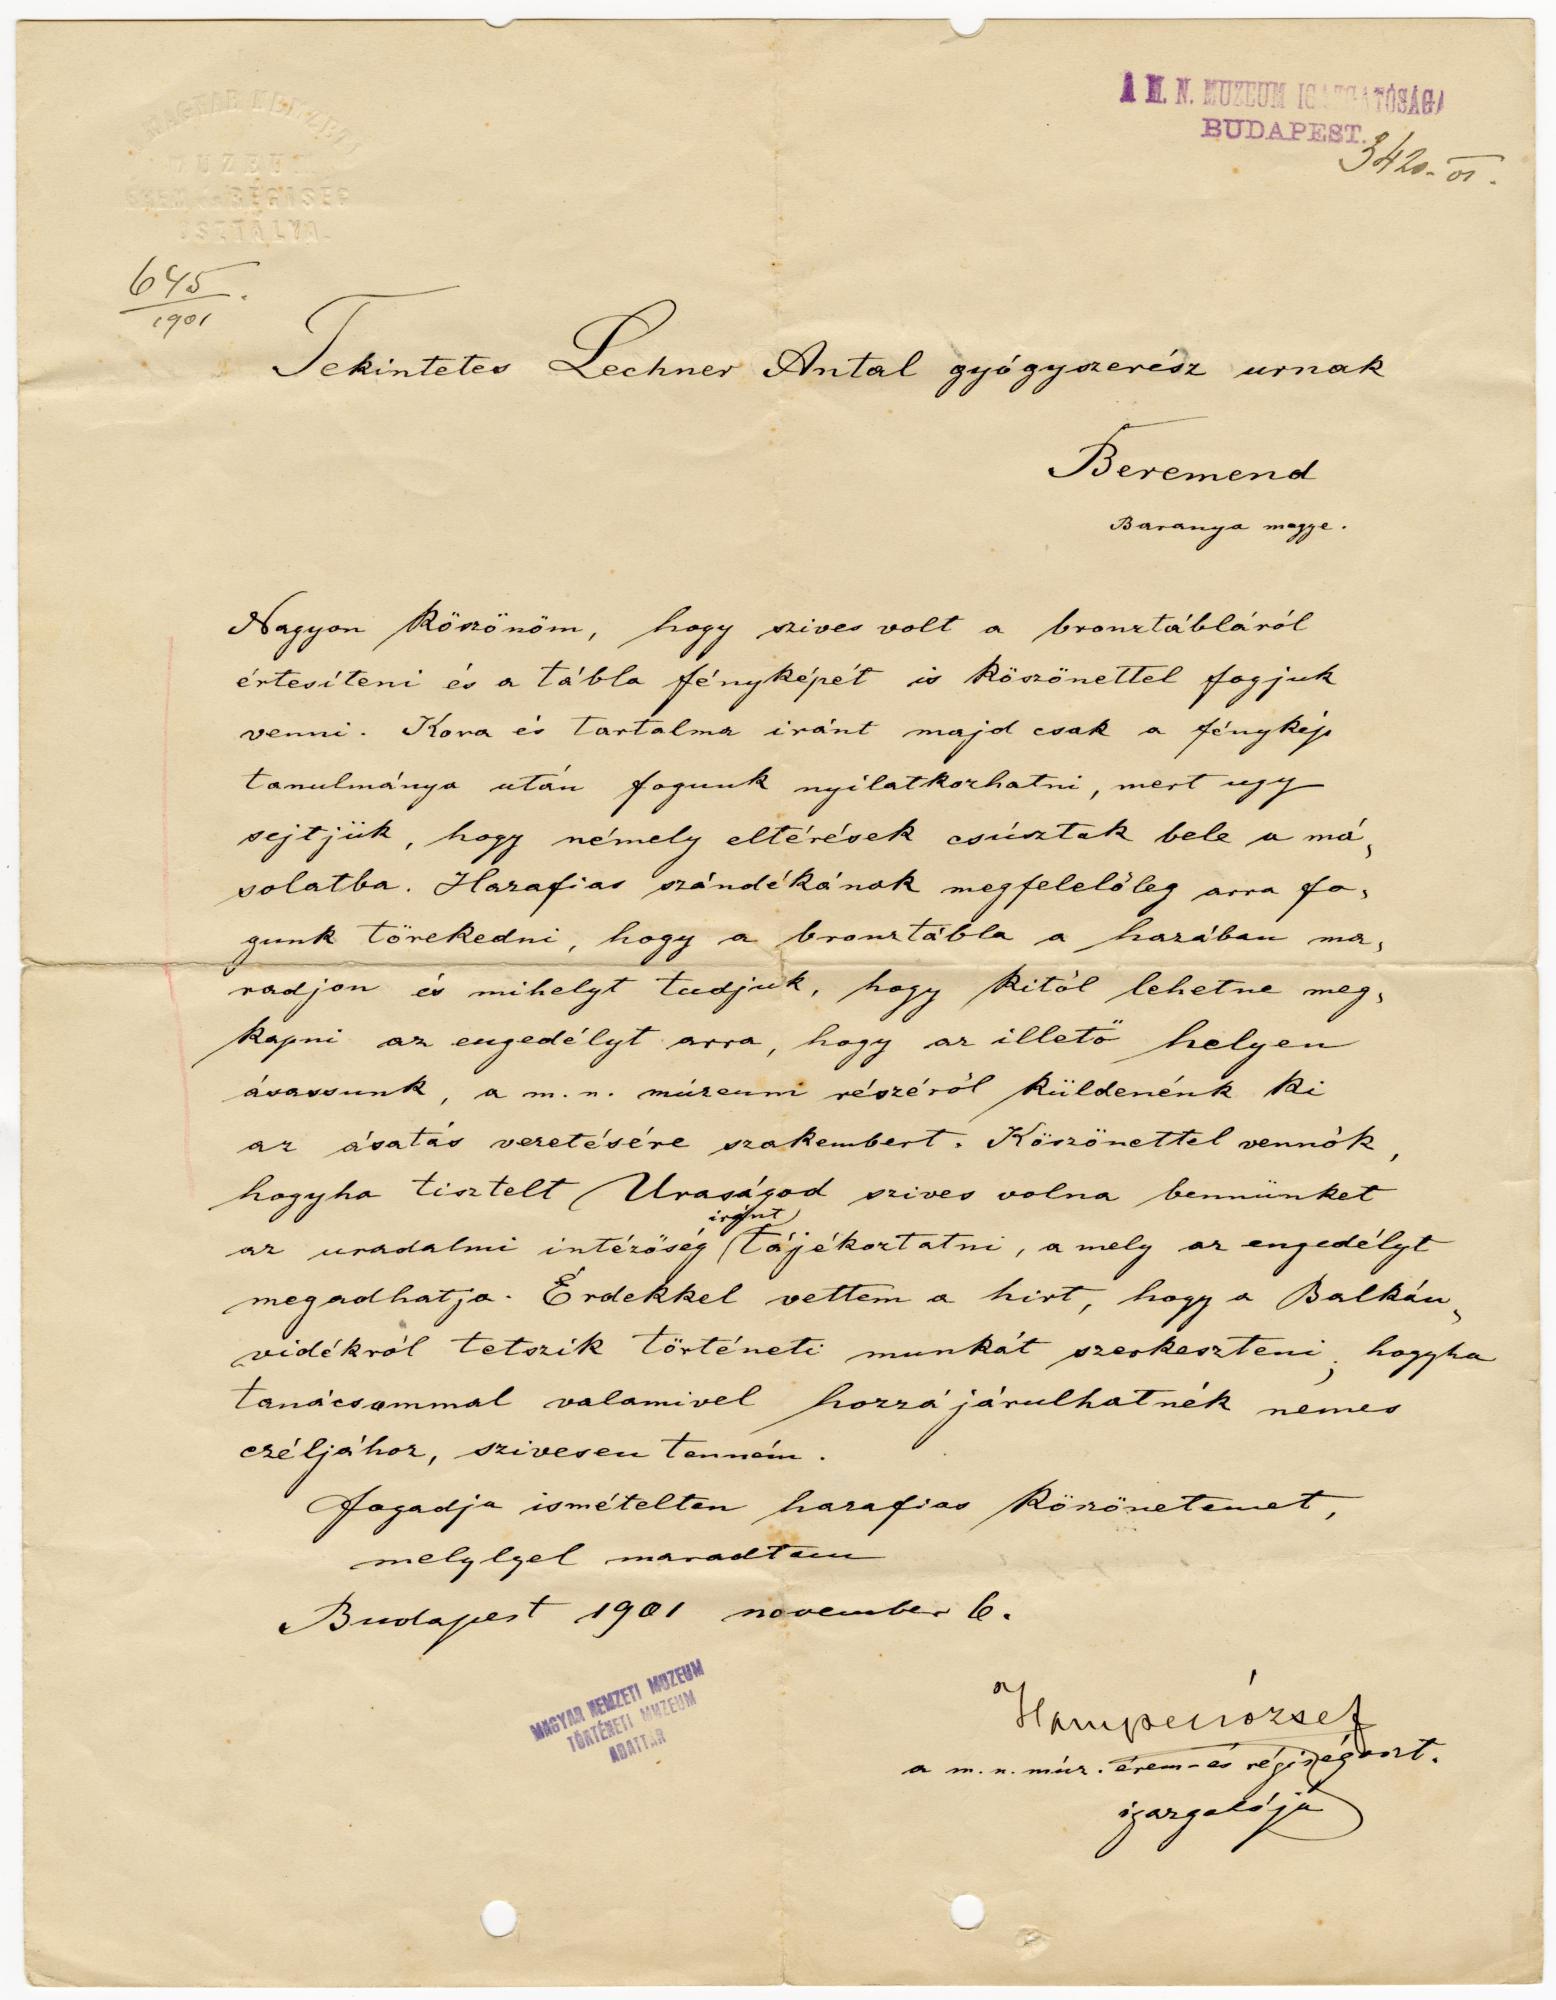 MAGYAR NEMZETI
MUZEUM
ÉREM ÉS RÉGISÉG
OSZTÁLYA.
A M. N. MUZEUM IGAZGATÓSÁGA
BUDAPEST.
3420-01.
645
1901.
Tekintetes Lechner Antal gyógyszerész urnak
Beremend
Baranya megye.
Nagyon köszönöm, hogy szives volt a bronztábláról
értesíteni és a tábla fényképét is köszönettel fogjuk
venni. Kora és tartalma iránt majd csak a fénykép
tanulmánya után fogunk nyilatkozhatni, mert ugy
sejtjük, hogy némely eltérések csúsztak bele a má-
solatba. Hazafias szándékának megfelelőleg arra fo-
gunk törekedni, hogy a bronztábla a hazában ma-
radjon és mihelyt tudjuk, hogy kitől lehetne meg-
kapni az engedélyt arra, hogy az illető helyen
ásassunk, a m. n. múzeum részéről küldenénk ki
az ásatás vezetésére szakembert. Köszönettel vennők,
hogyha tisztelt Uraságod szives volna bennünket
az uradalmi intézőség iránt tájékoztatni, a mely az engedélyt
megadhatja. Érdekkel vettem a hirt, hogy a Balkán-
vidékről tetszik történeti munkát szerkeszteni; hogyha
tanácsommal valamivel hozzájárulhatnék nemes
czéljához, szivesen tenném.
Fogadja ismételten hazafias köszönetemet,
melylyel maradtam
Budapest 1901 november 6.
Hampel József
a m. n. múz. érem- és régiségoszt.
igazgatója
MAGYAR NEMZETI MUZEUM
TÖRTÉNETI MUZEUM
ADATTÁR